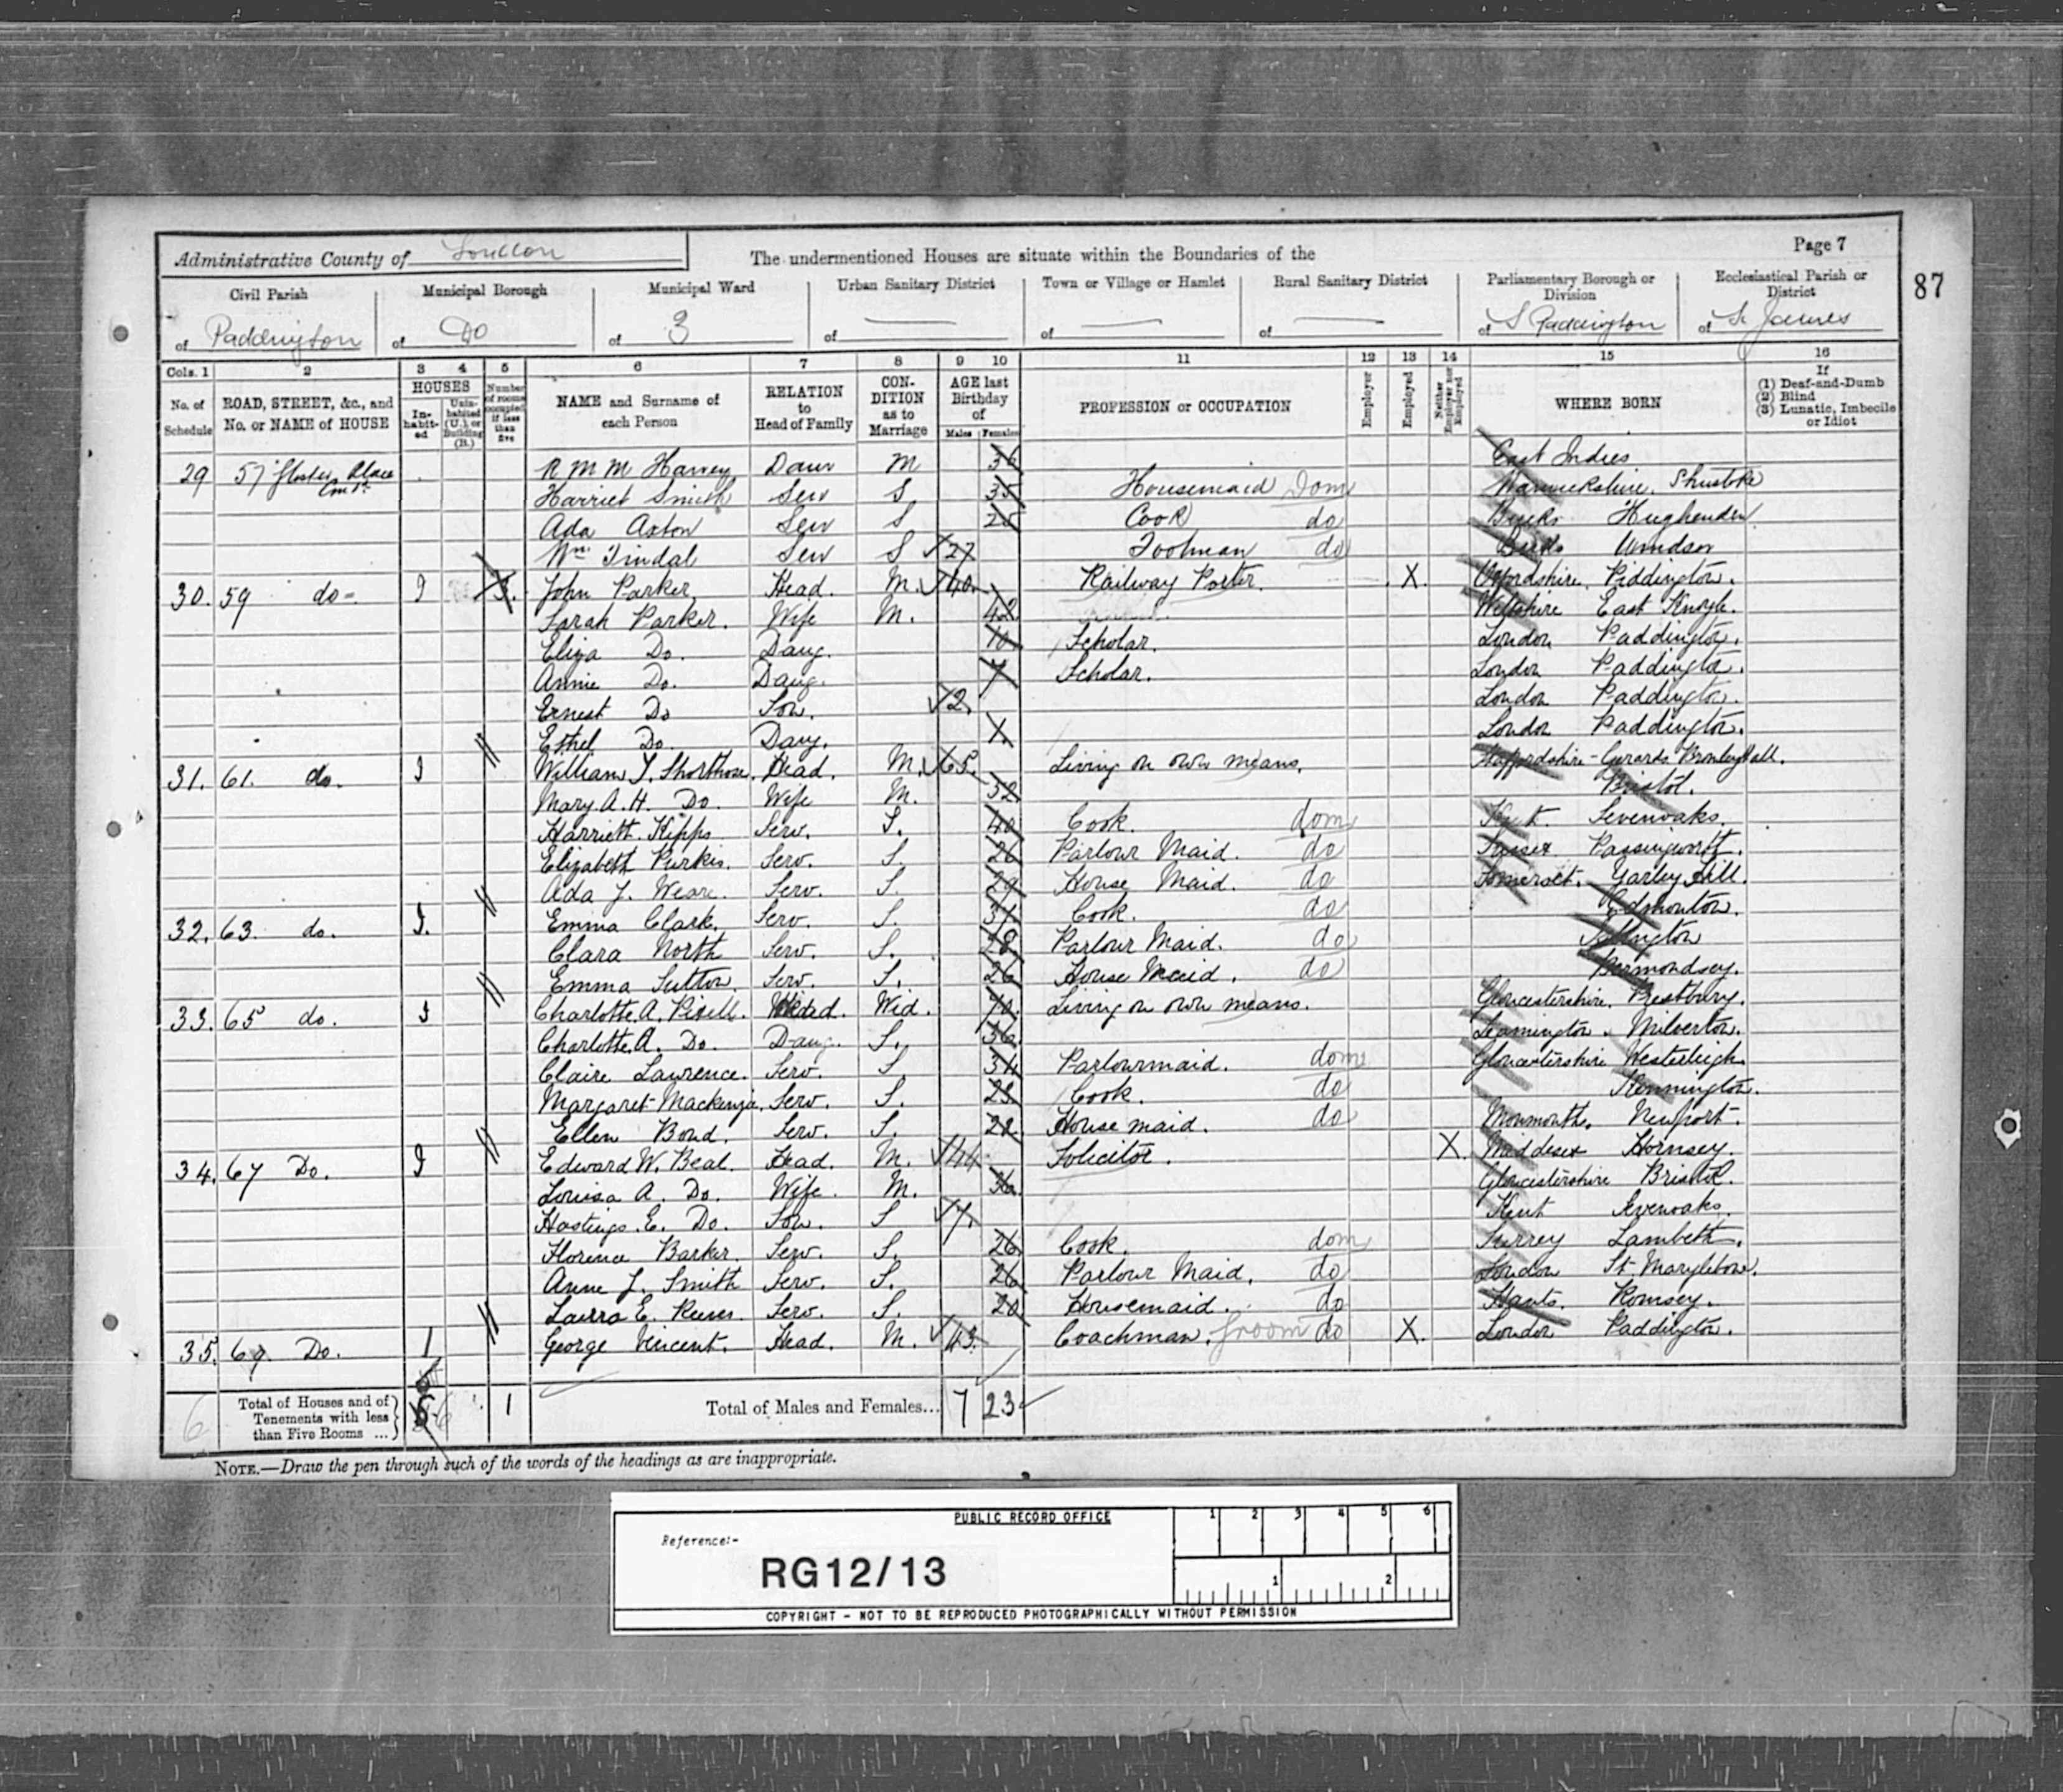 Administrative County of London
The undermentioned Houses are situate within the Boundaries of the
Page 7
87
Civil Parish
Municipal Borough
Municipal Ward
Urban Sanitary District
Town or Village or Hamlet
Rural Sanitary District
Parliamentary Borough or Division
Ecclesiastical Parish or District
of Paddington
of Do
of 3
of
of
of
of S Paddington
of St James
Cols. 1 2 3 4 5 6 7 8 9 10 11 12 13 14 15 16
No. of Schedule
ROAD, STREET, &c., and No. or NAME of HOUSE
HOUSES
Inhabited
Uninhabited (U.), or Building (B.)
Number of rooms occupied if less than five
NAME and Surname of each Person
RELATION to Head of Family
CONDITION as to Marriage
AGE last Birthday of
Males Females
PROFESSION or OCCUPATION
Employer
Employed
Neither Employer nor Employed
WHERE BORN
If
(1) Deaf-and-Dumb
(2) Blind
(3) Lunatic, Imbecile or Idiot
29 57 Gloster Place R M M Harvey Daur M 36 East Indies
Harriet Smith Serv S 35 Housemaid Dom Warwickshire. Shustoke
Ada Axton Serv S 25 Cook do Bucks Hughenden
Wm Tindal Serv S 27 Footman do Berks Windsor
30. 59 do- I 3. John Parker Head. M. 40. Railway Porter. X. Oxfordshire. Piddington.
Sarah Parker. Wife M. 42 Wiltshire East Knoyle.
Eliza Do. Daug. 10 Scholar. London Paddington.
Annie Do. Daug. 7 Scholar. London Paddington.
Ernest Do Son. 2. London Paddington.
Ethel Do. Daug. 1. London Paddington.
31. 61. do. I William T. Shorthose. Head. M. 65. Living on own means. Staffordshire - Gerards Bromley Hall.
Mary A. H. Do. Wife M. 52 Bristol.
Harriett Kipps Serv. S. 40 Cook. dom Kent. Sevenoaks.
Elizabeth Purkis. Serv. S. 26 Parlour Maid. do Sussex Possingworth.
Ada J. Weare. Serv. S. 29 House Maid. do Somerset.
32. 63. do. I. Emma Clark. Serv. S. 31 Cook. do Edmonton.
Clara North Serv. S. 28. Parlour Maid. do Islington
Emma Sutton. Serv. S. 26 House Maid. do Bermondsey.
33. 65 do. I Charlotte A. Head. Wid. 70. Living on own means. Gloucestershire. Prestbury.
Charlotte A. Do. Daug. S. 36. Leamington. Milverton.
Claire Lawrence. Serv. S. 34 Parlourmaid. dom Gloucestershire Westerleigh
Margaret Mackenzie. Serv. S. 23 Cook. do Kennington.
Ellen Bond. Serv. S. 22. House maid. do Monmouths. Newport.
34. 67 Do. I Edward W. Beal. Head. M. 44. Solicitor. X. Middlesex Hornsey.
Louisa A. Do. Wife. M. 36. Gloucestershire Bristol.
Hastings. E. Do. Son. S 7. Kent Sevenoaks.
Florence Barker. Serv. S. 26 Cook. dom Surrey Lambeth.
Anne J. Smith Serv. S. 26 Parlour Maid. do London St. Marylebone.
Laura E. Serv. S. 20 Housemaid. do Hants. Romsey.
35. 69. Do. 1 George Vincent. Head. M. 43. Coachman. Groom do X. London Paddington.
6 Total of Houses and of Tenements with less than Five Rooms ... 6 1 Total of Males and Females... 7 23
NOTE.—Draw the pen through such of the words of the headings as are inappropriate.
PUBLIC RECORD OFFICE
1 2 3 4 5 6
Reference:-
RG12/13
1 2
COPYRIGHT - NOT TO BE REPRODUCED PHOTOGRAPHICALLY WITHOUT PERMISSION